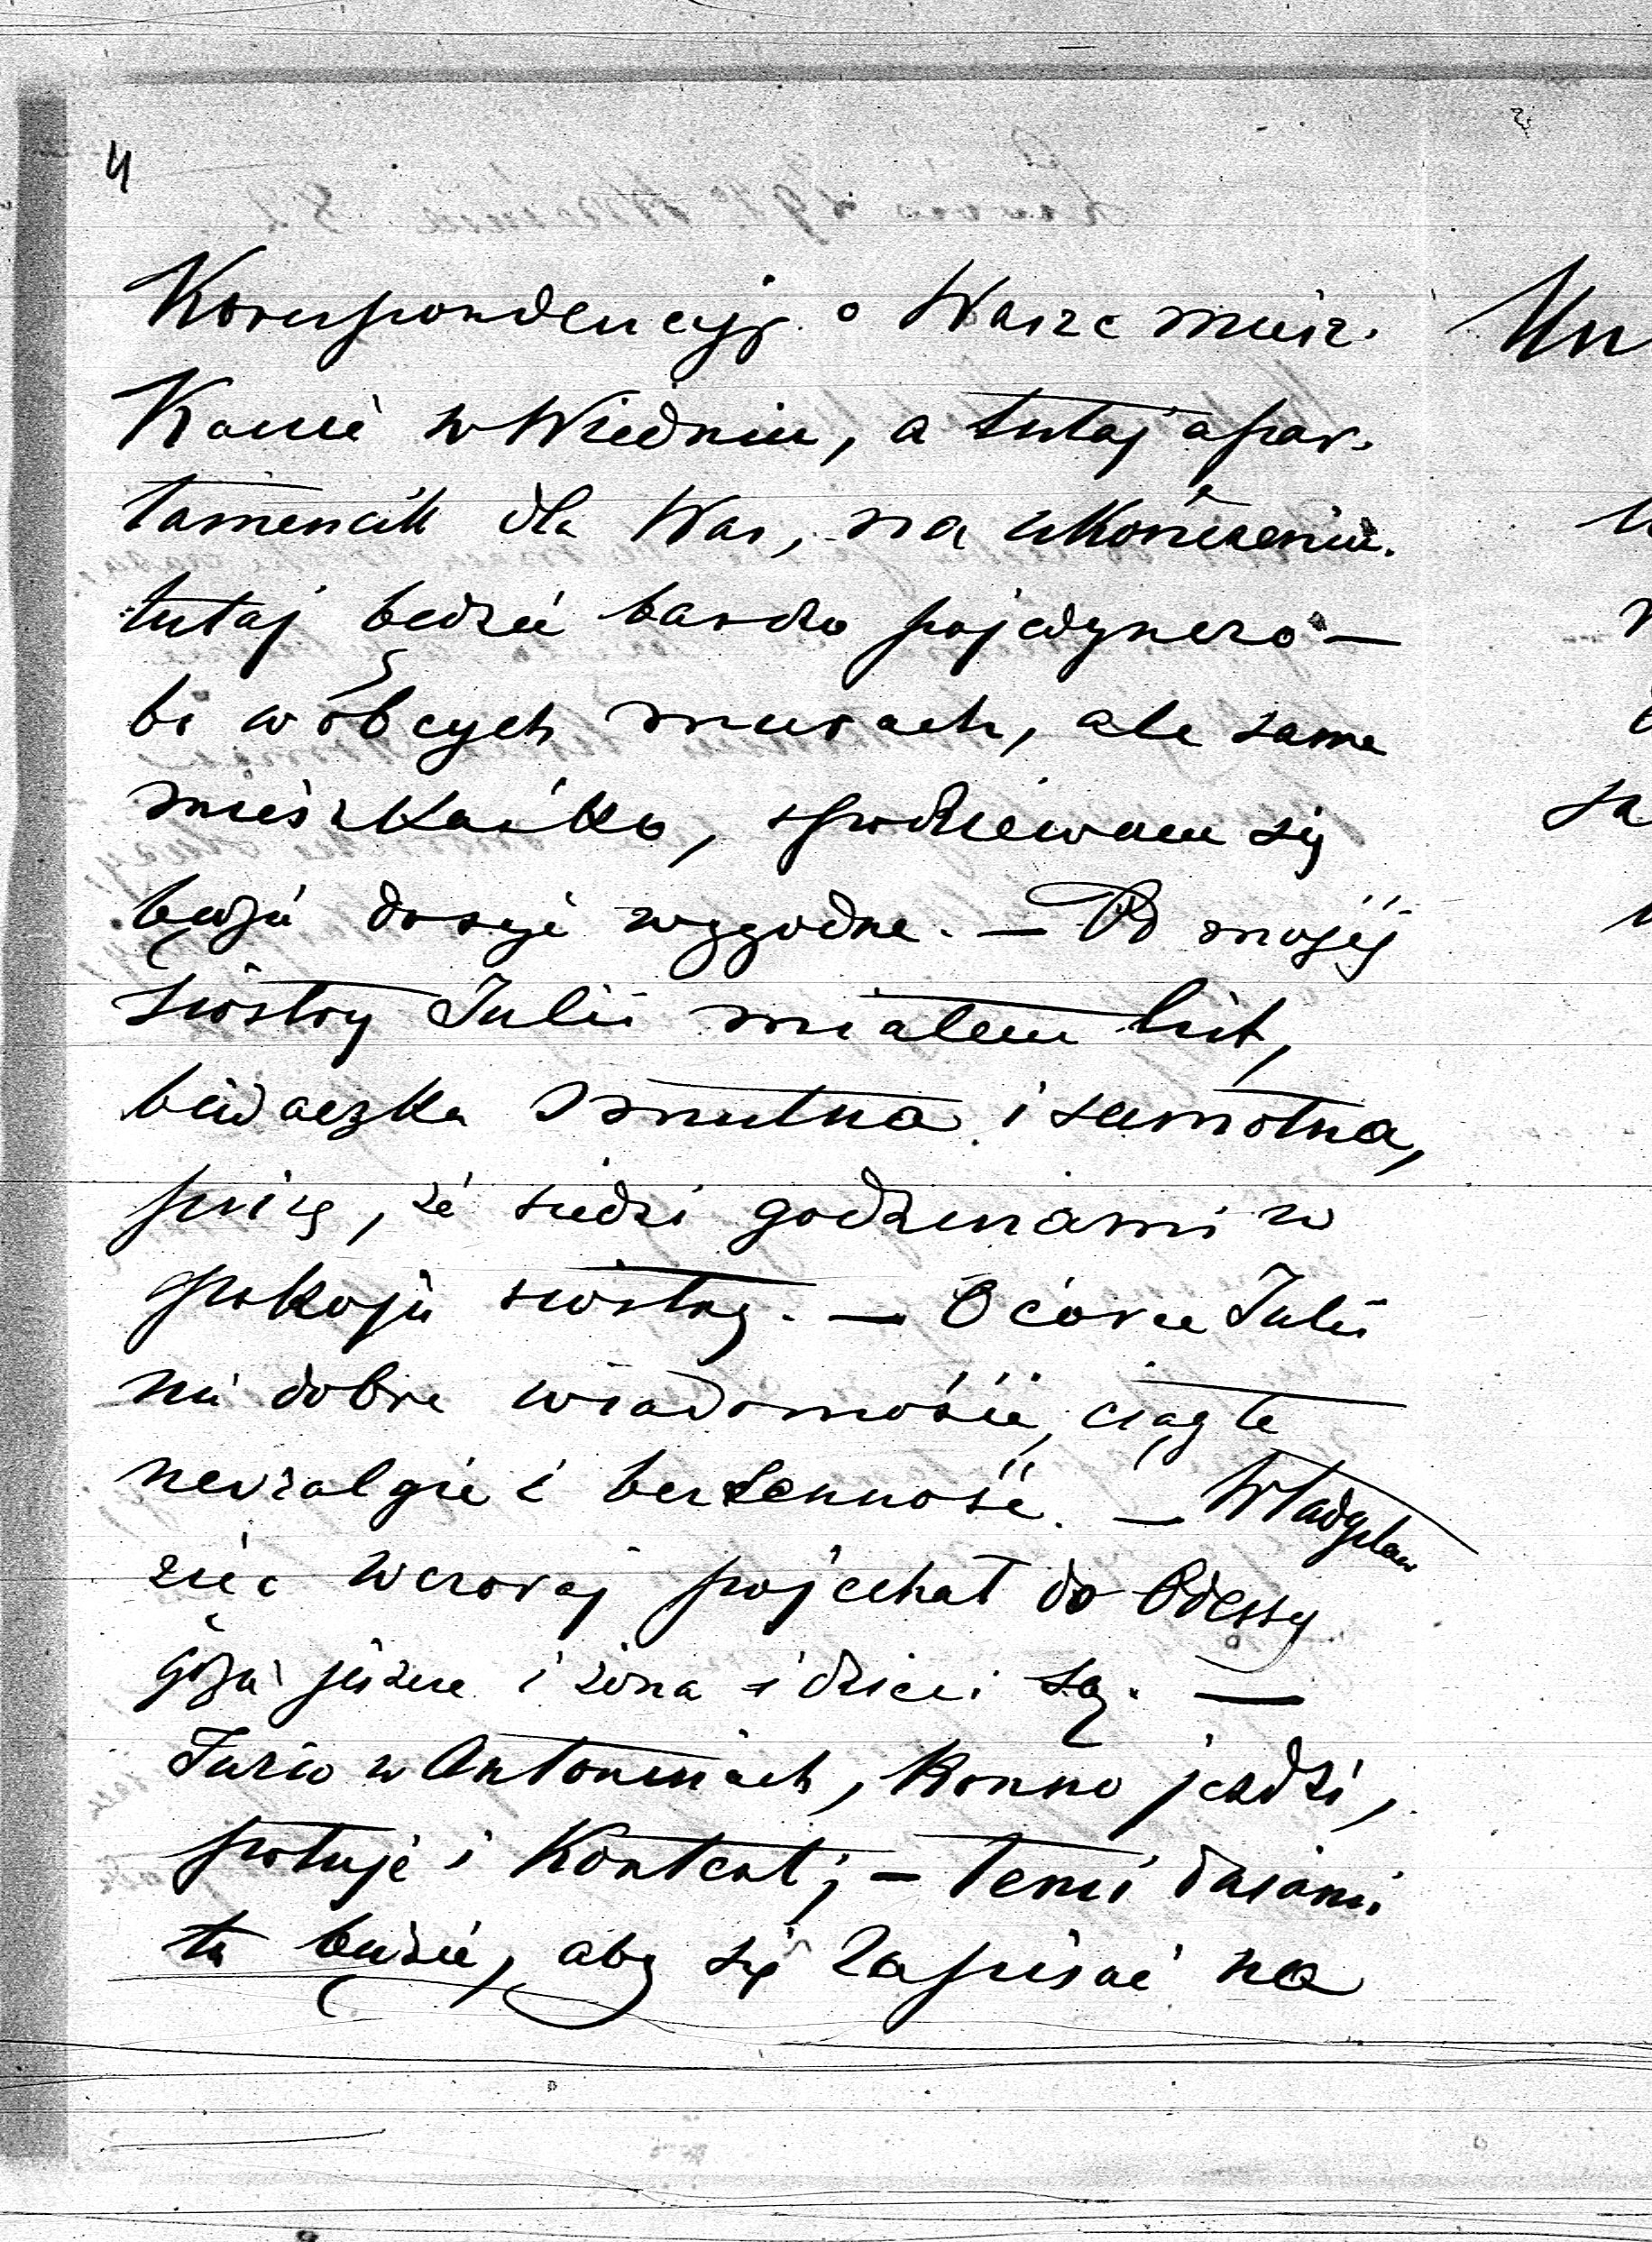 4
Korespondencyję o Wasze miesz-
kanie w Wiedniu, a tutaj apar-
tamencik dla Was, na ukończeniu.
tutaj będzie bardzo pojedynczo —
bo w obcych murach, ale same
mieszkańko, spodziewam się
będzie dosyć wygodne. — Od mojéj
siostry Julii miałem list,
biedaczka smutna i samotna,
pisze, że siedzi godzinami w
pokoju siostry. — O córce Julii
nie dobre wiadomości, ciągłe
nevralgie i bezsenność. — Władysław
zięć wczoraj pojechał do Odessy
gdzie jeszcze i żona i dzieci są. —
Józio w Antoninach, konno jeździ,
poluje i kontent; — temi dniami
tu będzie, aby się zapisać na